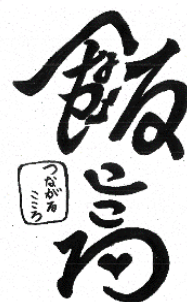 飯高
つながる
こころ